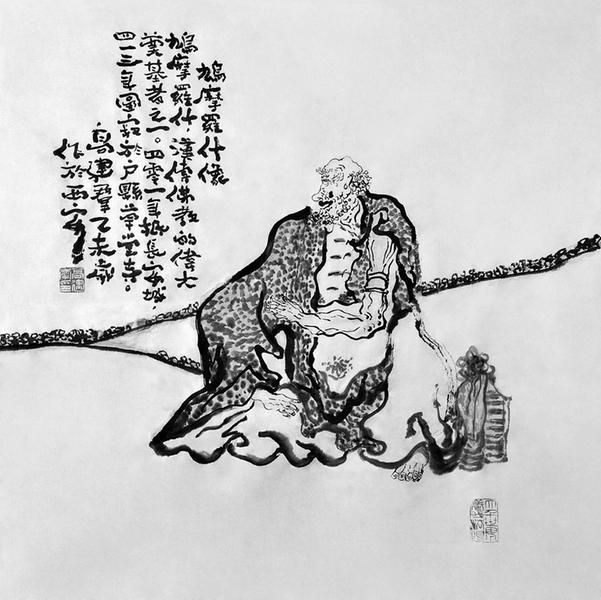 鳩摩羅什像
鳩摩羅什，漢傳佛教的偉大
奠基者之一。四零一年抵長安城
四一三年圓寂於户縣草堂寺。
高運群乙未歲
作於西安